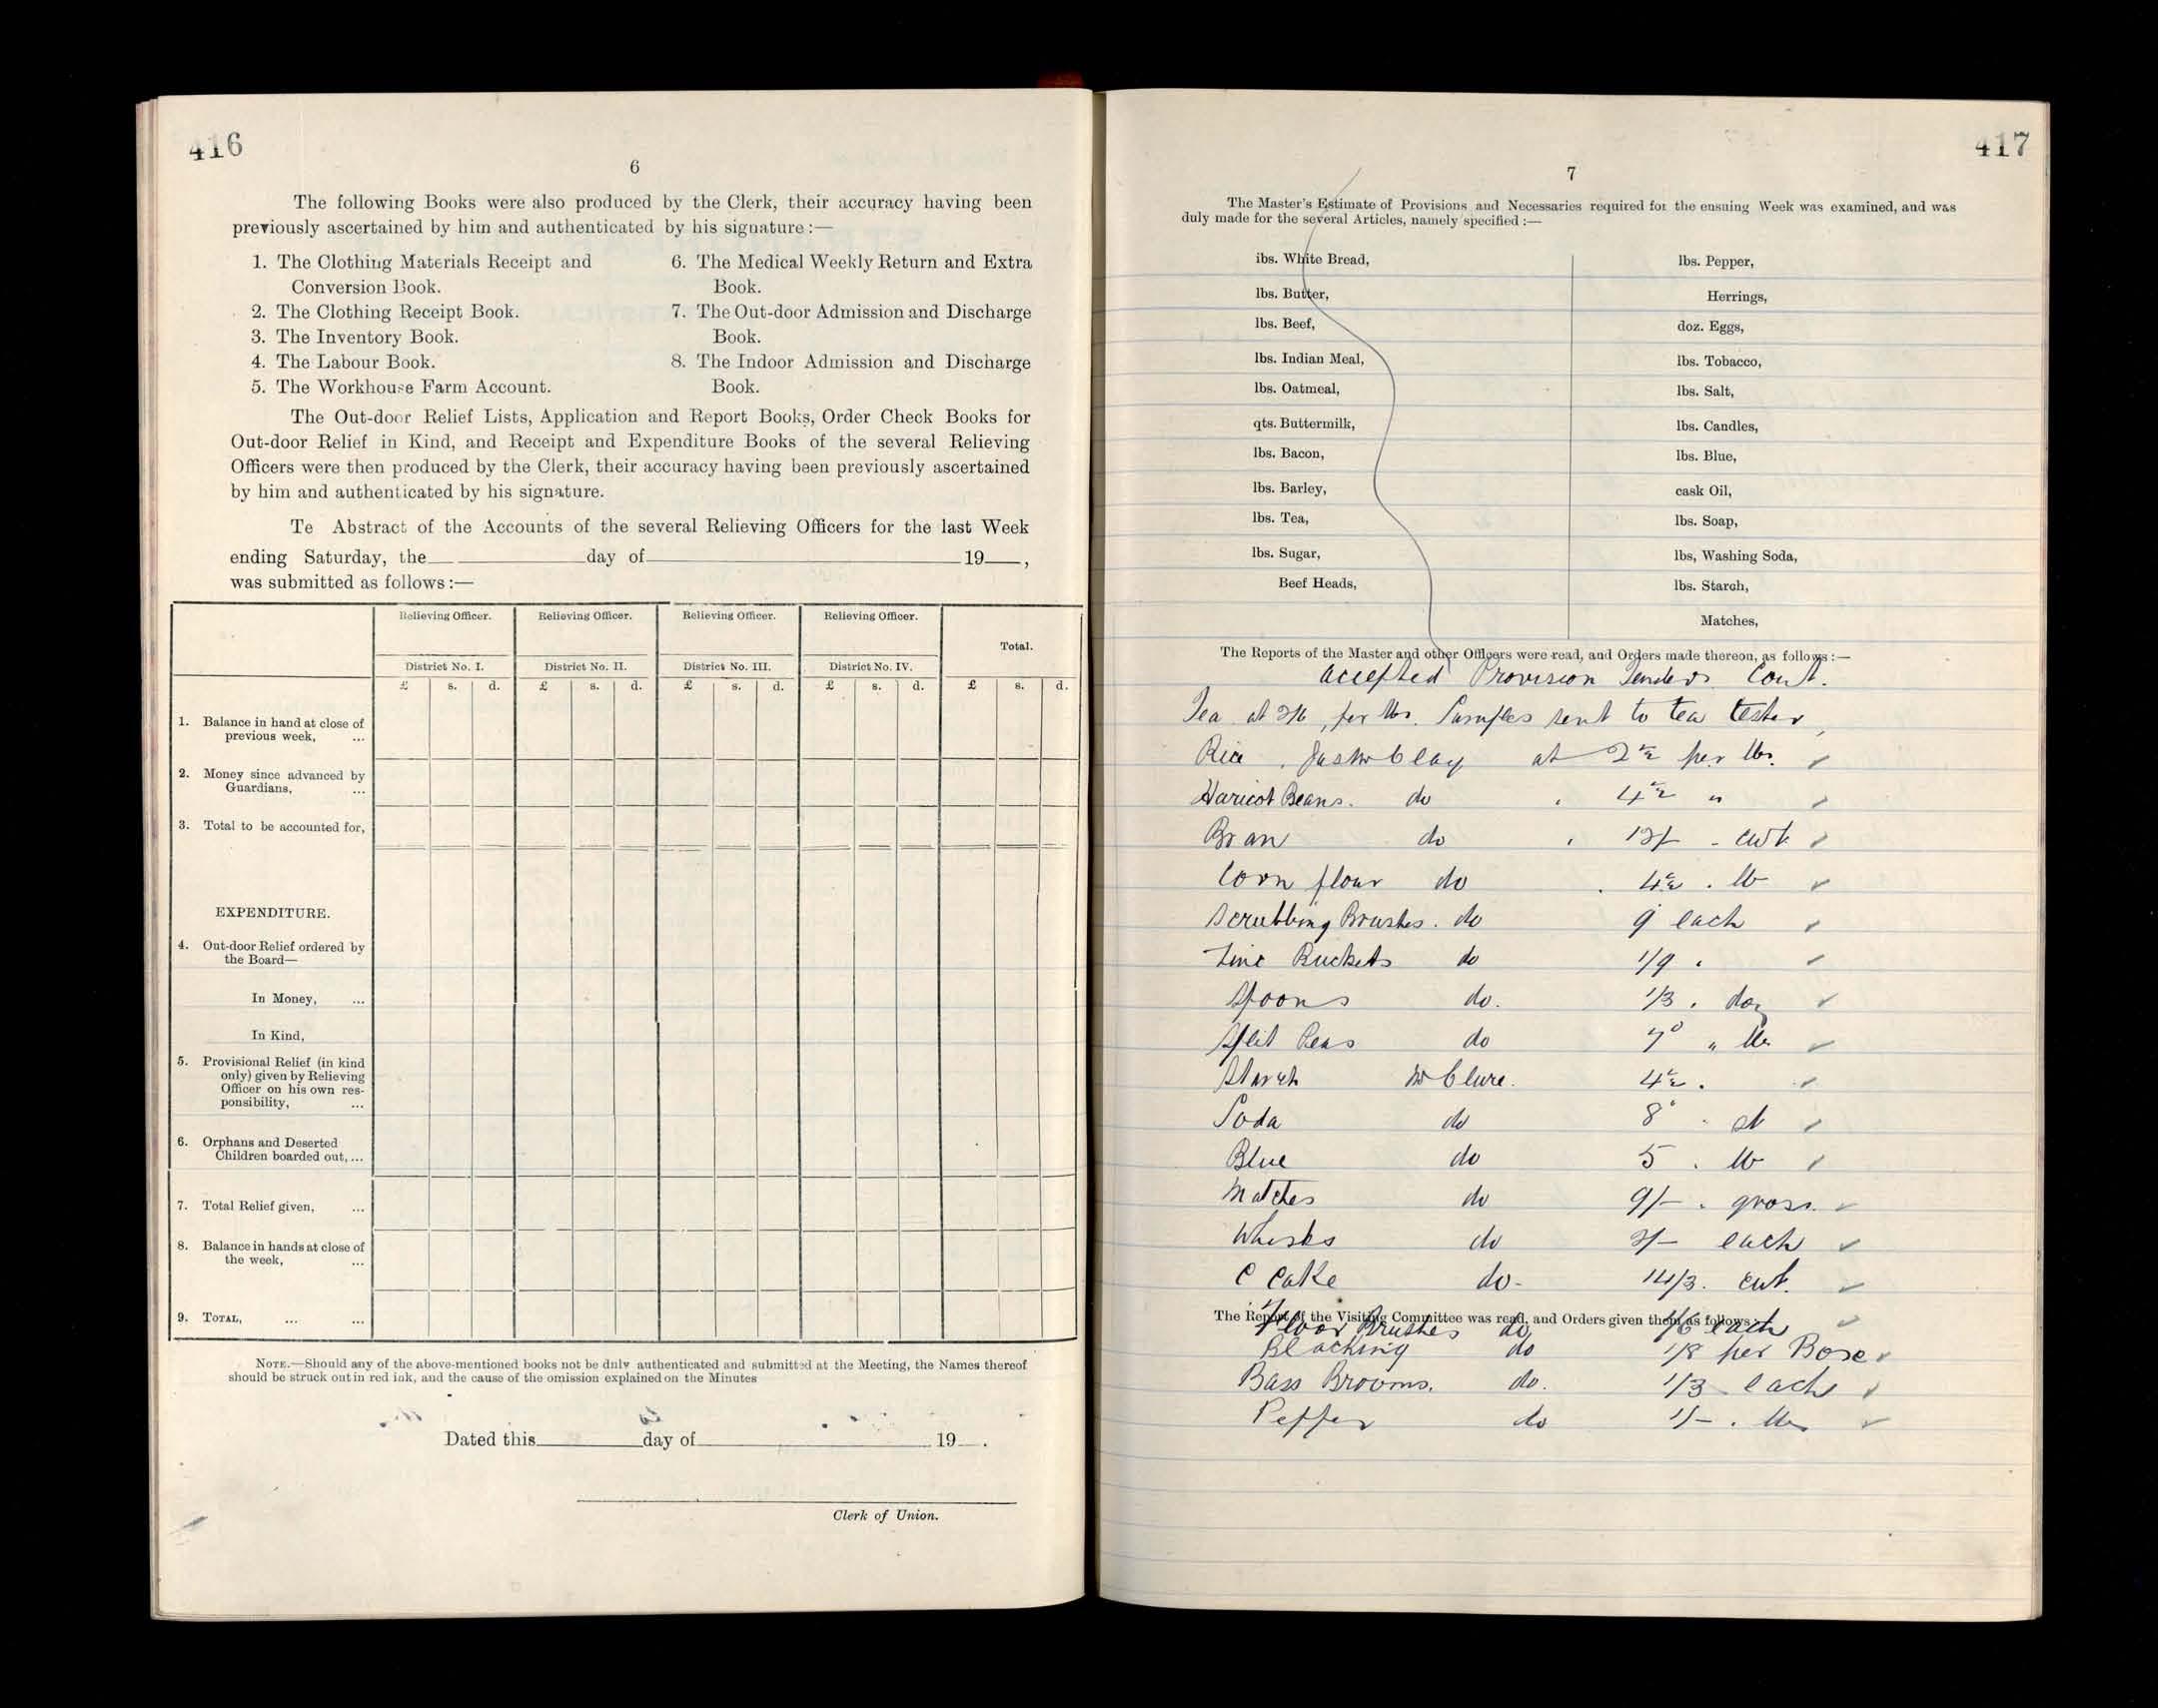 416
6
The following Books were also produced by the Clerk, their accuracy having been
previously ascertained by him and authenticated by his signature :—
1. The Clothing Materials Receipt and
Conversion Book.
2. The Clothing Receipt Book.
3. The Inventory Book.
4. The Labour Book.
5. The Workhouse Farm Account.
6. The Medical Weekly Return and Extra
Book.
7. The Out-door Admission and Discharge
Book.
8. The Indoor Admission and Discharge
Book.
The Out-door Relief Lists, Application and Report Books, Order Check Books for
Out-door Relief in Kind, and Receipt and Expenditure Books of the several Relieving
Officers were then produced by the Clerk, their accuracy having been previously ascertained
by him and authenticated by his signature.
Te Abstract of the Accounts of the several Relieving Officers for the last Week
ending Saturday, the day of 19 ,
was submitted as follows :—
Relieving Officer. Relieving Officer. Relieving Officer. Relieving Officer.
Total.
District No. I. District No. II. District No. III. District No. IV.
£ s. d. £ s. d. £ s. d. £ s. d. £ s. d.
1. Balance in hand at close of
previous week, ...
2. Money since advanced by
Guardians, ...
3. Total to be accounted for,
EXPENDITURE.
4. Out-door Relief ordered by
the Board—
In Money, ...
In Kind,
5. Provisional Relief (in kind
only) given by Relieving
Officer on his own res-
ponsibility, ...
6. Orphans and Deserted
Children boarded out, ...
7. Total Relief given, ...
8. Balance in hands at close of
the week, ...
9. TOTAL, ... ...
NOTE.—Should any of the above-mentioned books not be duly authenticated and submitted at the Meeting, the Names thereof
should be struck out in red ink, and the cause of the omission explained on the Minutes
Dated this day of 19 .
Clerk of Union.
417
7
The Master's Estimate of Provisions and Necessaries required for the ensuing Week was examined, and was
duly made for the several Articles, namely specified :—
lbs. White Bread,
lbs. Butter,
lbs. Beef,
lbs. Indian Meal,
lbs. Oatmeal,
qts. Buttermilk,
lbs. Bacon,
lbs. Barley,
lbs. Tea,
lbs. Sugar,
Beef Heads,
lbs. Pepper,
Herrings,
doz. Eggs,
lbs. Tobacco,
lbs. Salt,
lbs. Candles,
lbs. Blue,
cask Oil,
lbs. Soap,
lbs, Washing Soda,
lbs. Starch,
Matches,
The Reports of the Master and other Officers were read, and Orders made thereon, as follows :—
Accepted Provision Tenders Cont.
Tea at 2/6 per lb. Samples sent to tea tester
Rice Jas McClay at 2½ per lb. ✓
Haricot Beans. do 4½ " ✓
Bran do 12/- cwt ✓
Corn flour do 4½ . lb ✓
Scrubbing Brushes. do 9 each ✓
Zinc Buckets do 1/9 ✓
Spoons do. 1/3 . doz ✓
Split Peas do 7d " lb ✓
Starch McClure. 4½ . ✓
Soda do 8d . st ✓
Blue do 5 . lb ✓
Matches do 9/- . gross. ✓
Whisks do 2/- each ✓
C Cake do- 14/3. cwt. ✓
The Report of the Visiting Committee was read, and Orders given them as follows :
Floor Brushes do /6 each ✓
Blacking do 1/8 per Boxe ✓
Bass Brooms. do. 1/3 each ✓
Pepper do 1/- . lb ✓